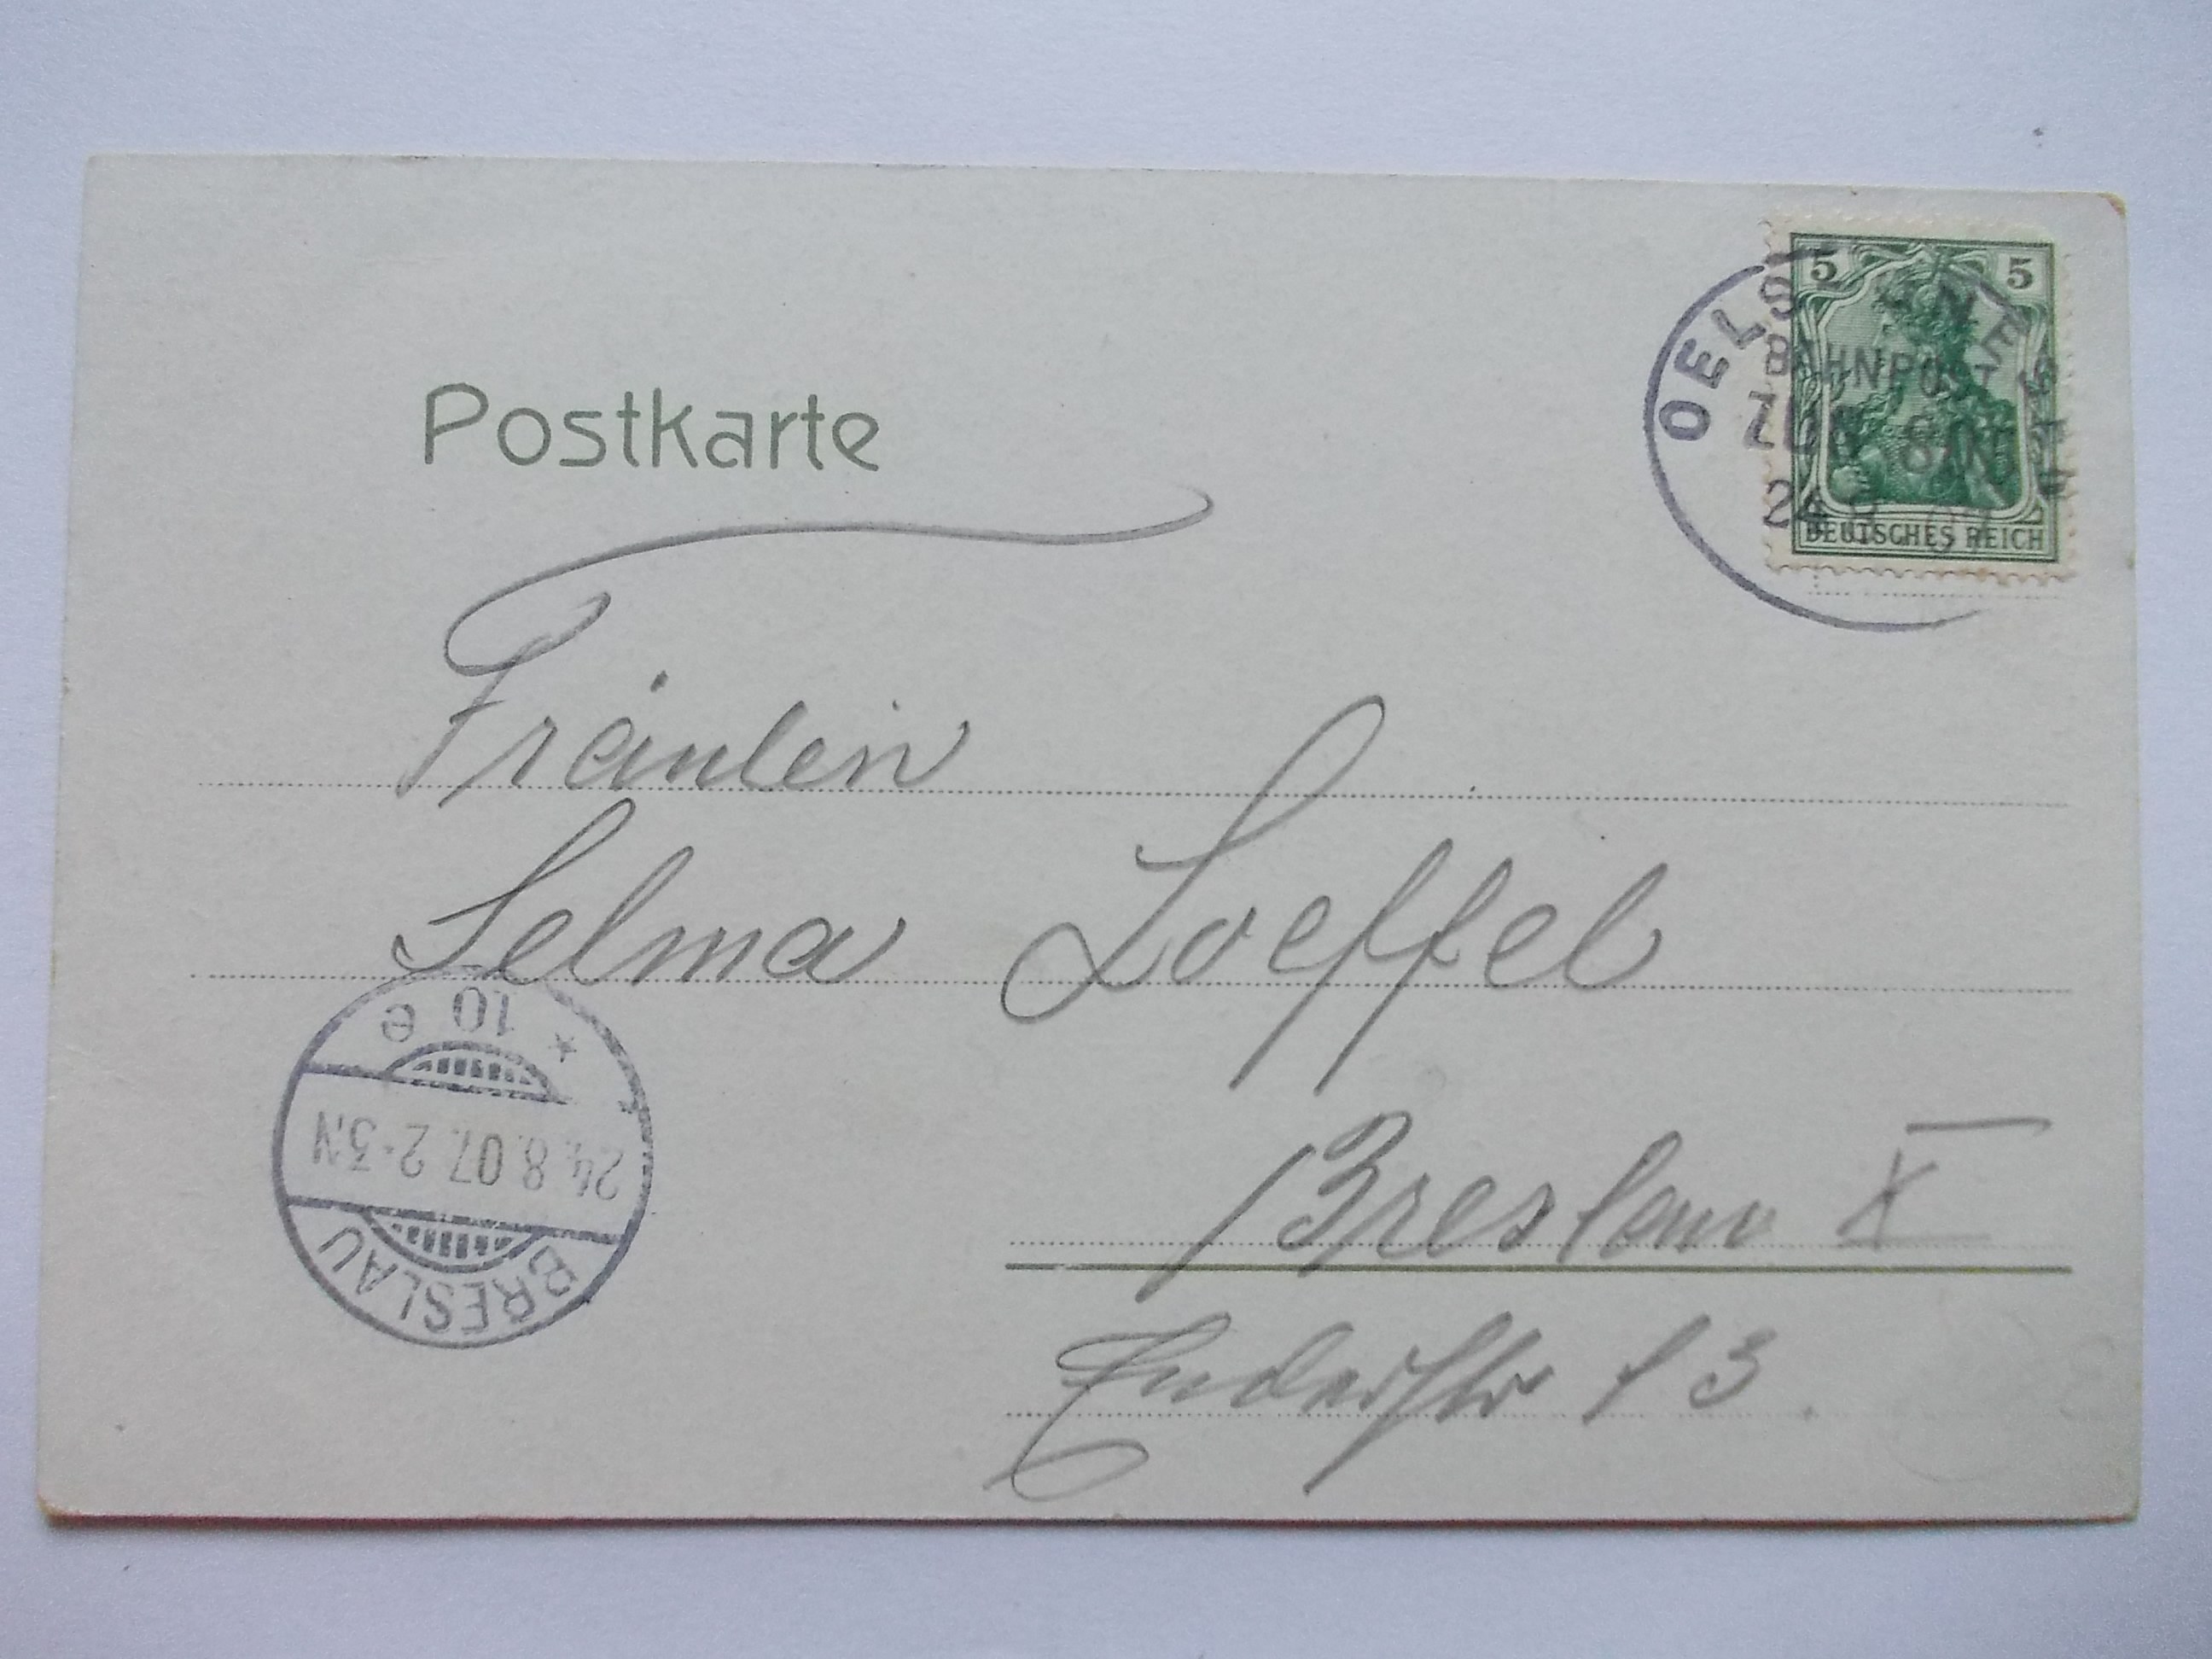 Postkarte
5 5
DEUTSCHES REICH
OELS
BAHNPOST
ZUG
24 8 07
Fräulein
Selma Loeffel
Breslau X
Enderstr 13.
10 e
*
24.8.07. 2-3N
BRESLAU